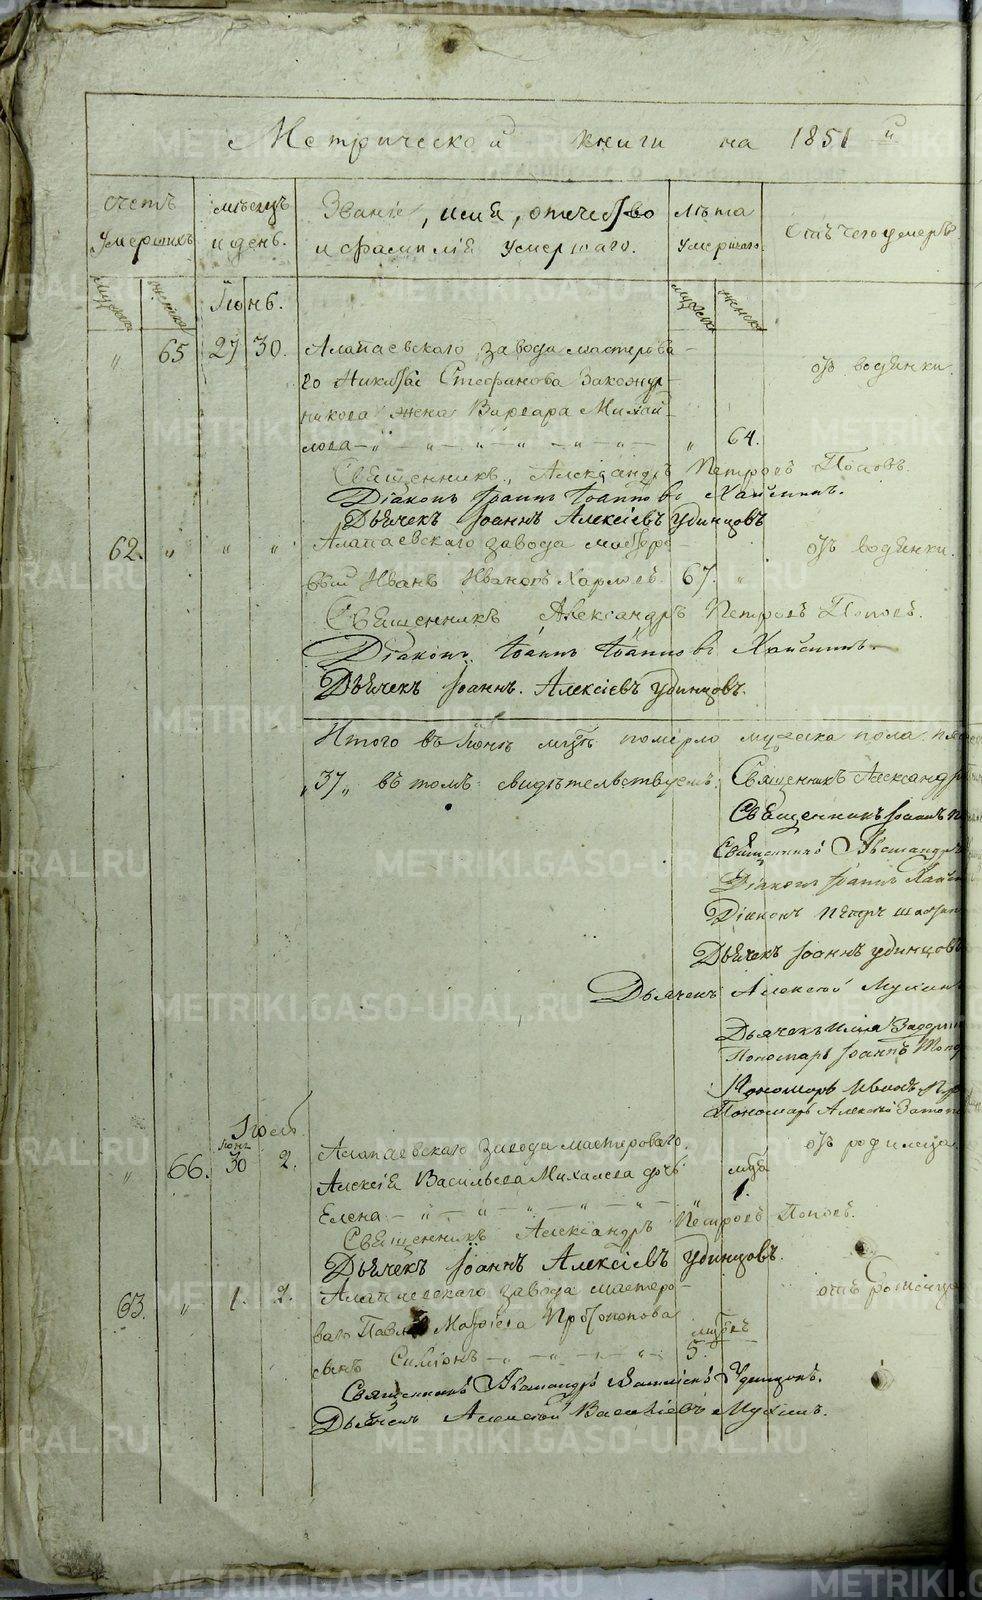 Метрической книги на 1851 й
счетъ умершихъ
мѣсяцъ и день.
Званіе, имя, отчество и фамиліѧ умершаго.
лѣта умершаго.
Отъ чего умеръ
мужска
женска
Іюнь.
мужска
женска
„ 65 27 30. Алапаевскаго завода мастерова-
го Никиты Стефанова Закожур-
никова жена Варвара Михай-
лова — „ — „ — „ — „ — „ 64. отъ водянки.
Священникъ, Александръ Петровъ Поповъ.
Діаконъ Іоаннъ Іоанновъ
Дьячекъ Іоаннъ Алексіевъ Удинцовъ
62. „ „ „ Алапаевскаго завода мастеро-
вый Иванъ Ивановъ Харловъ. 67. „ отъ водянки.
Священникъ Александръ Петровъ Поповъ.
Діаконъ Іоаннъ Іоанновъ
Дьячекъ Іоаннъ. Алексіевъ Удинцовъ.
Итого въ Іюнѣ мцѣ померло мужеска пола
„37„ въ томъ свидѣтельствуемъ: Священникъ Александръ
Священникъ Іоаннъ
Священникъ Александръ
Діаконъ Іоаннъ
Діаконъ Петръ
Дьячекъ Іоаннъ Удинцовъ
Дьячекъ Алексѣй Мухинъ
Дьячекъ Илія
Пономарь Іоаннъ
Пономарь Иванъ
Пономарь Алексѣй
Іюль.
Іюнь
„ 66. 30 2. Алапаевскаго завода мастероваго
Алексія Васильева Михалева дочь
Елена — „ — „ — „ — „ — мцъ 1. отъ родимца.
Священникъ Александръ Петровъ Поповъ.
Дьячекъ Іоаннъ Алексіевъ Удинцовъ.
63. „ 1. 2. Алапаевскаго завода мастеро-
ваго Павла Матвіева Протопопова
сынъ Симіонъ — „ — „ — „ — „ 5. отъ родимца
Священникъ Александръ Удинцовъ.
Дьячекъ Алексѣй Васильевъ Мухинъ.
METRIKI.GASO-URAL.RU